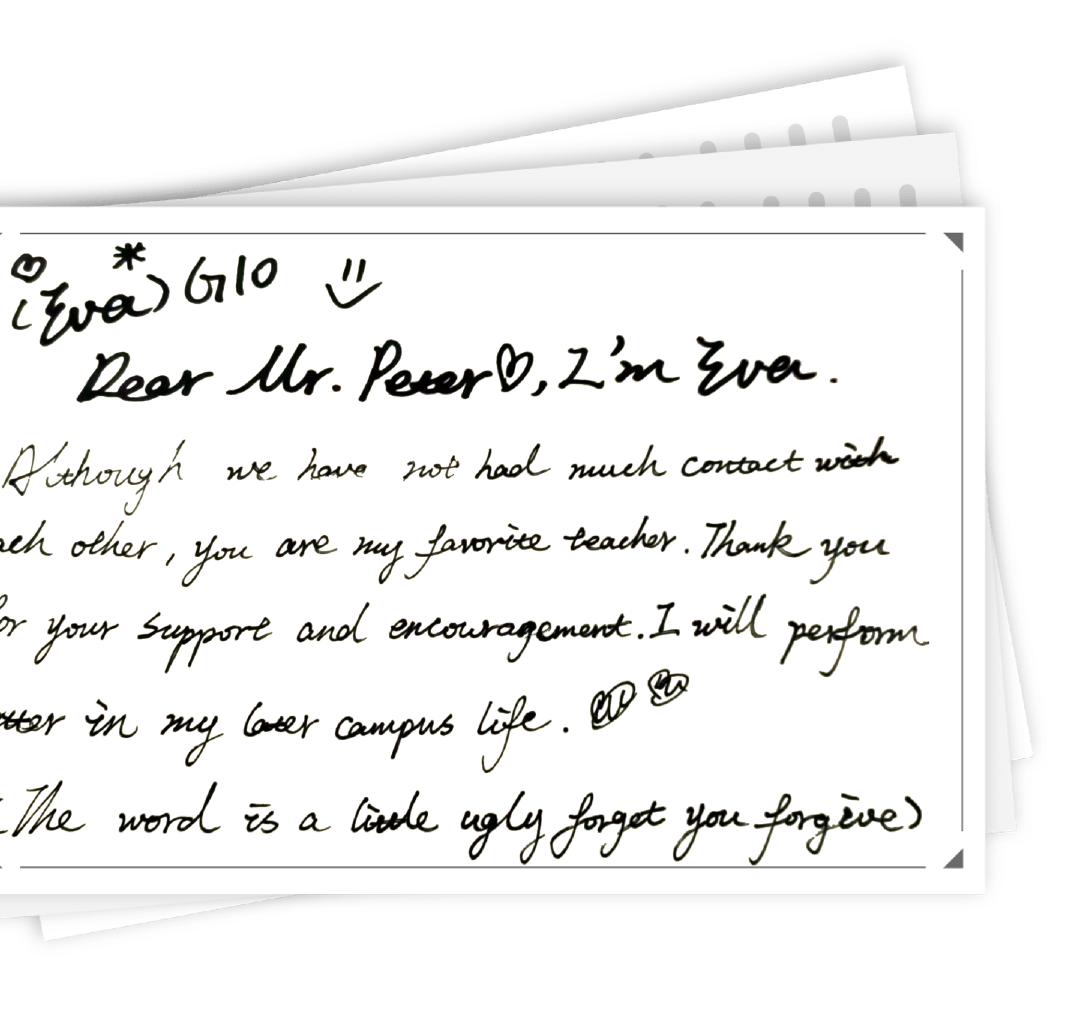 (Eva) G10
Dear Mr. Peter♡, I'm Eva.
Although we have not had much contact with
ach other, you are my favorite teacher. Thank you
or your support and encouragement. I will perform
tter in my later campus life.
(The word is a little ugly forget you forgive)